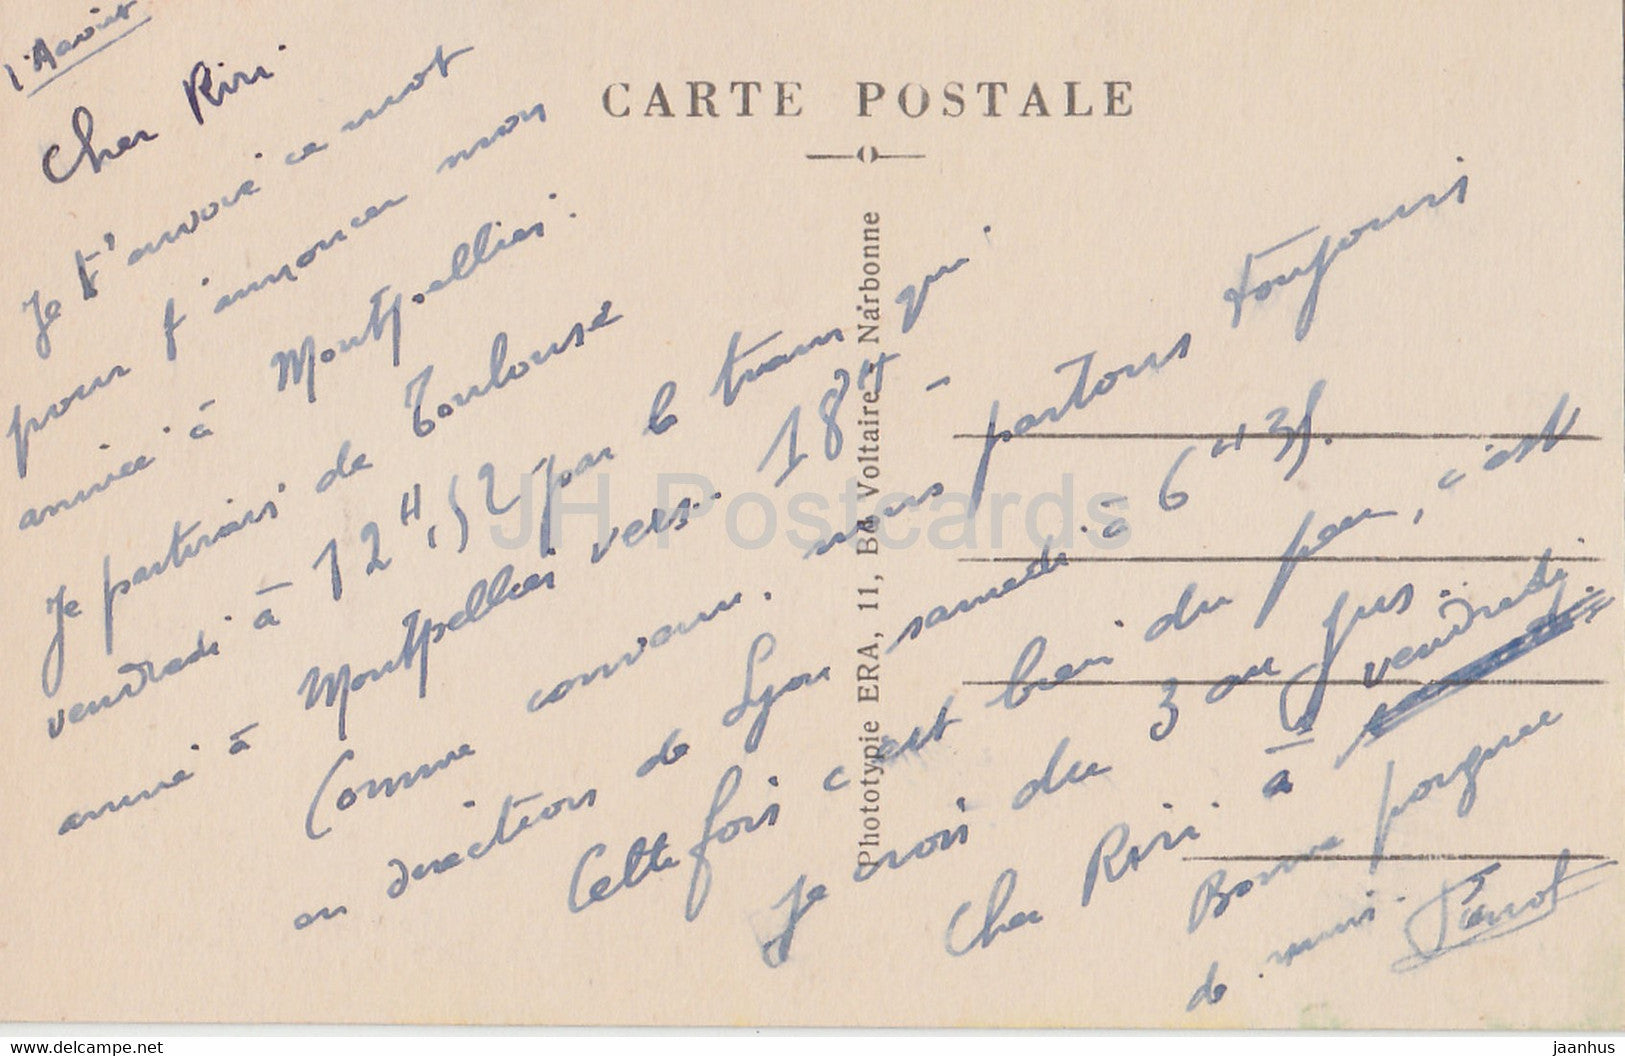 Cher Riri.
CARTE POSTALE
Je t'envoie ce mot
pour t'annoncer mon
arrivée à Montpellier.
Je partirais de Toulouse
vendredi à 12H,52 par le train qui
arrive à Montpellier vers 18H -
Comme convenu. nous partons toujours
en direction de Lyon samedi à 6H35.
Cette fois c'est bien du peu, c'est
Je crois du 3 au jus.
Cher Riri. à à vendredi.
Bonne poignée
de mains.
Phototypie ERA, 11, Bd Voltaire - Narbonne
JH Postcards
www.delcampe.net
jaanhus